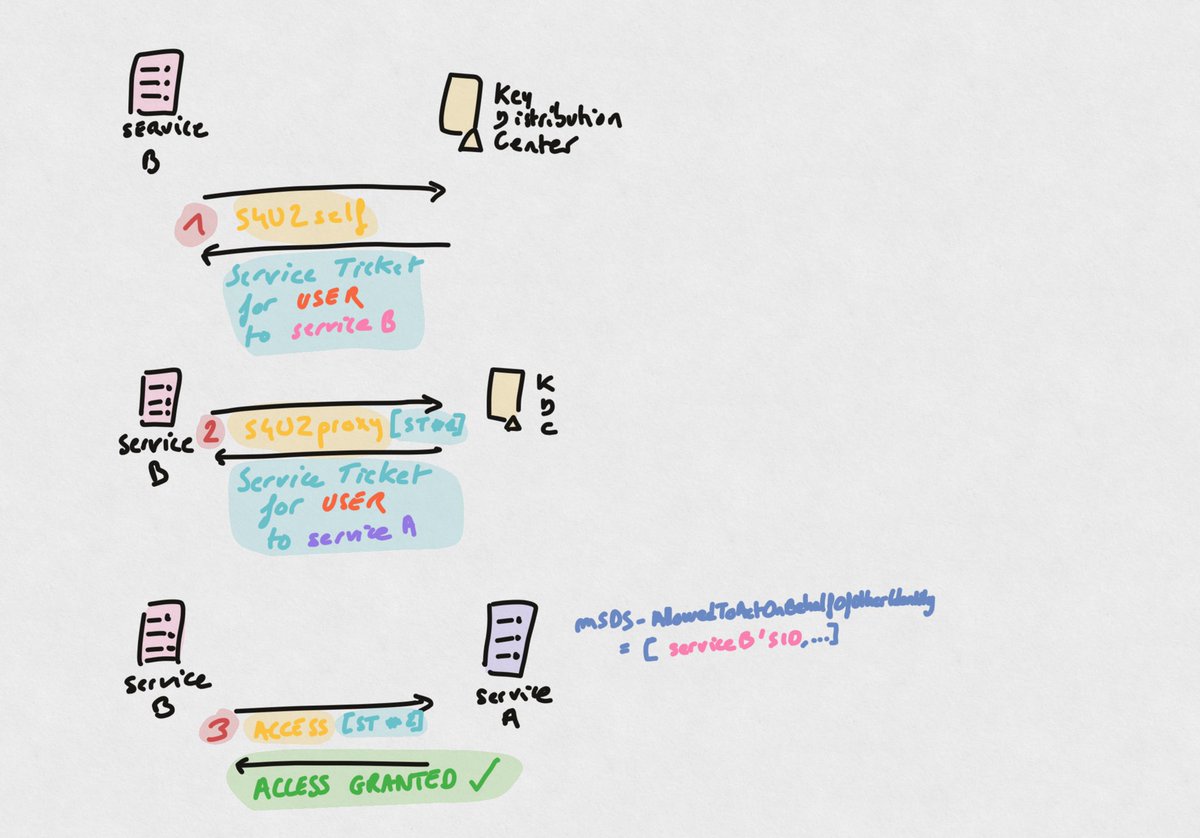 SERVICE
B
Key
Distribution
Center
1
S4U2self
Service Ticket
for USER
to service B
Service
B
K
D
C
2
S4U2proxy [ST#1]
Service Ticket
for USER
to service A
Service
B
Service
A
mSDS-AllowedToActOnBehalfOfOtherIdentity
= [ serviceB'SID,...]
3
ACCESS [ST#2]
ACCESS GRANTED ✓